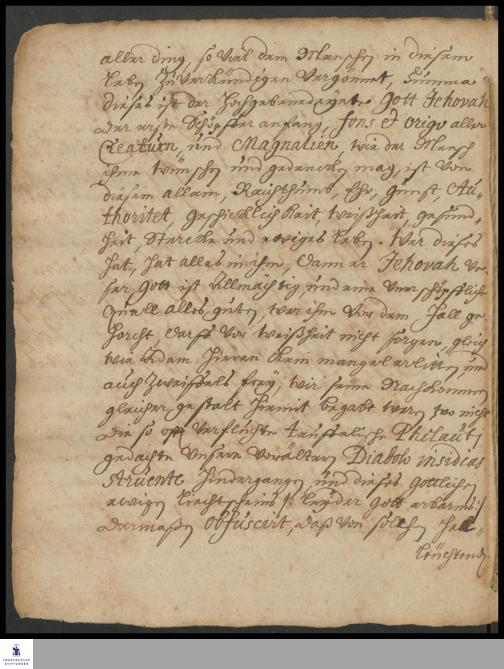 aller ding, so viel dem Menschen in diesem
leben zu verkündigen vergönnet, Summa
dieses ist der hochgebenedeyete Gott Jehovah
der erste Schöpffer anfang, fons et origo aller
Creaturn, und Magnalien, wie der Mensch
ihme wünschen und gedencken mag, ist von
diesem allain, Reichthumb, Ehr, gunst, Au-
thoritet, geschicklichkait, weißheit, gesund-
heit, Stercke und ewiges leben. Wer dieses
hat, hat alles in ihm, dann er Jehovah un-
ser Gott ist allmächtig, und eine unerschöpffliche
quell alles guten, wer ihm vor dem fall ge-
horcht, darff vor weißheit nicht sorgen, gleich
wie Adam hieran kein mangel erlitten, und
auch zweiffels frey, wir seine Nachkommen
gleicher gestalt hiemit begabt weren, wo nicht
die so offt verfluchte teuffelische Philauti
gedachte unsere voreltern Diabolo insidias
struente hindergangen, und dieses Göttlichen
ewigen liechtscheins /: leyder Gott erbarms :/
dermaßen obfuscirt, daß von solchen hell-
leuchtenden
FRANCKESCHE
STIFTUNGEN